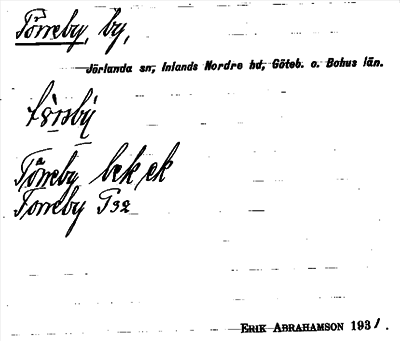 Törreby, by,
Jörlanda sn, Inlands Nordre hd, Göteb. o. Bohus län.
Törreby bek, ek
Torreby P32
ERIK ABRAHAMSON 1931.